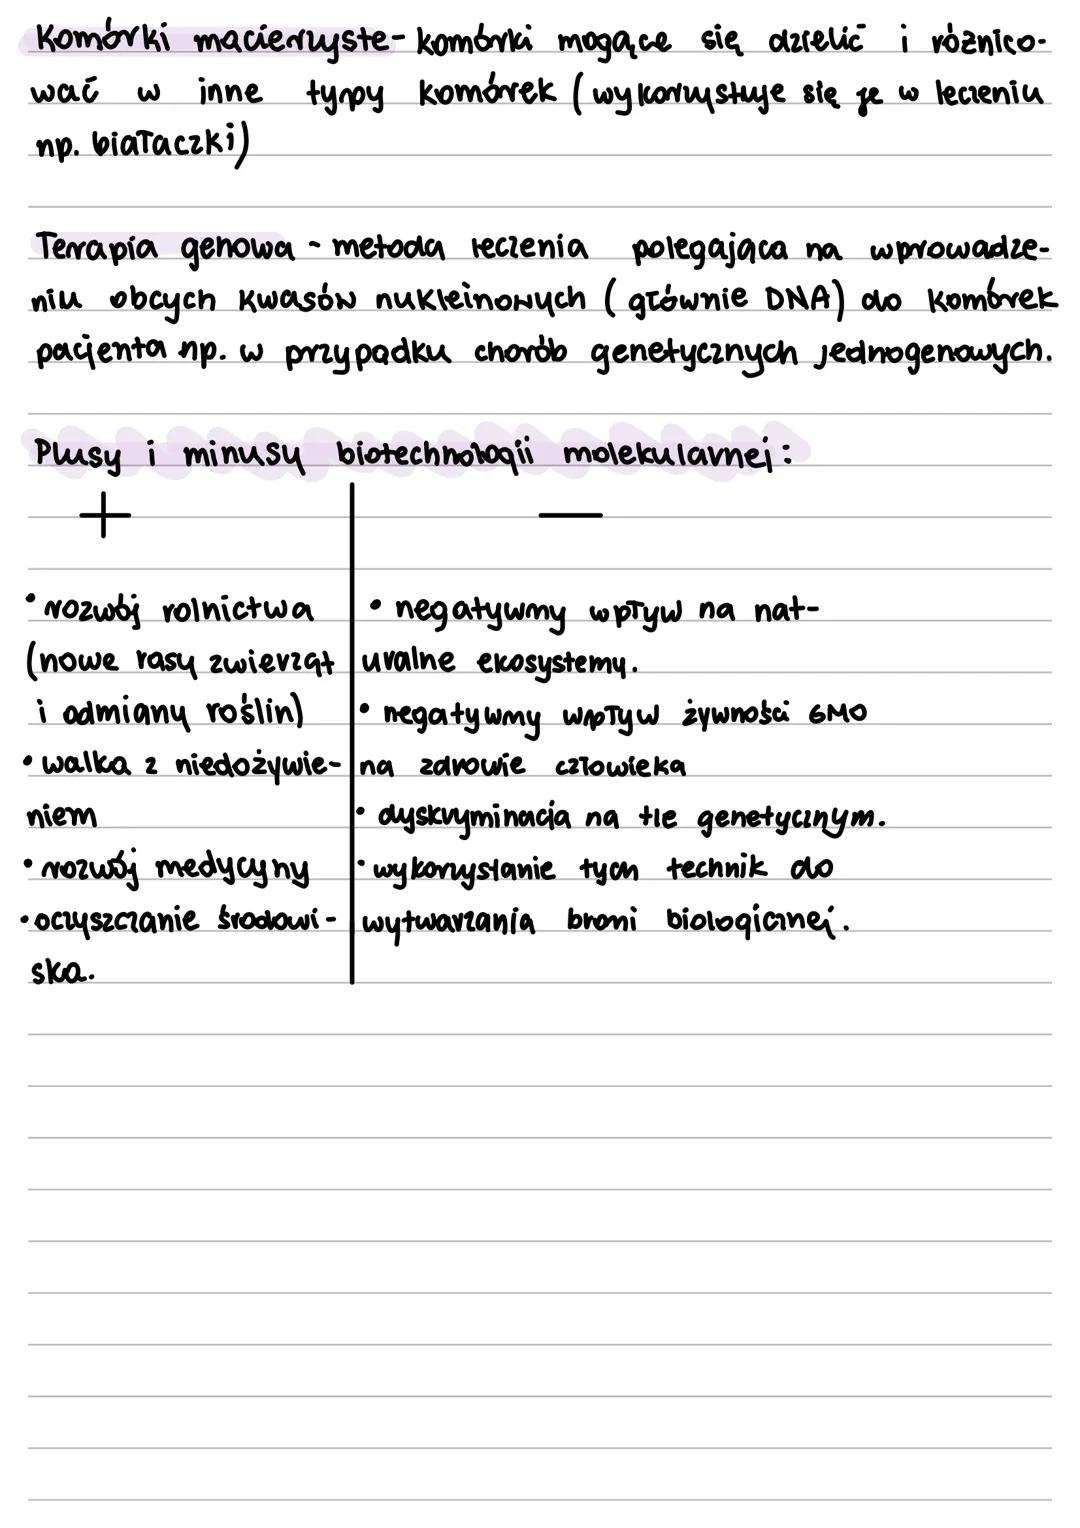 Komórki macierzyste - komórki mogące się dzielić i różnico-
wać w inne typy komórek (wykorzystuje się je w leczeniu
np. białaczki)
Terapia genowa - metoda leczenia polegająca na wprowadze-
niu obcych kwasów nukleinowych (głównie DNA) do komórek
pacjenta np. w przypadku chorób genetycznych jednogenowych.
Plusy i minusy biotechnologii molekularnej:
+
• rozwój rolnictwa
(nowe rasy zwierząt
i odmiany roślin)
• walka z niedożywie-
niem
• rozwój medycyny
• oczyszczanie środowi-
ska.
—
• negatywny wpływ na nat-
uralne ekosystemy.
• negatywny wpływ żywności GMO
na zdrowie człowieka
• dyskryminacja na tle genetycznym.
• wykorzystanie tych technik do
wytwarzania broni biologicznej.